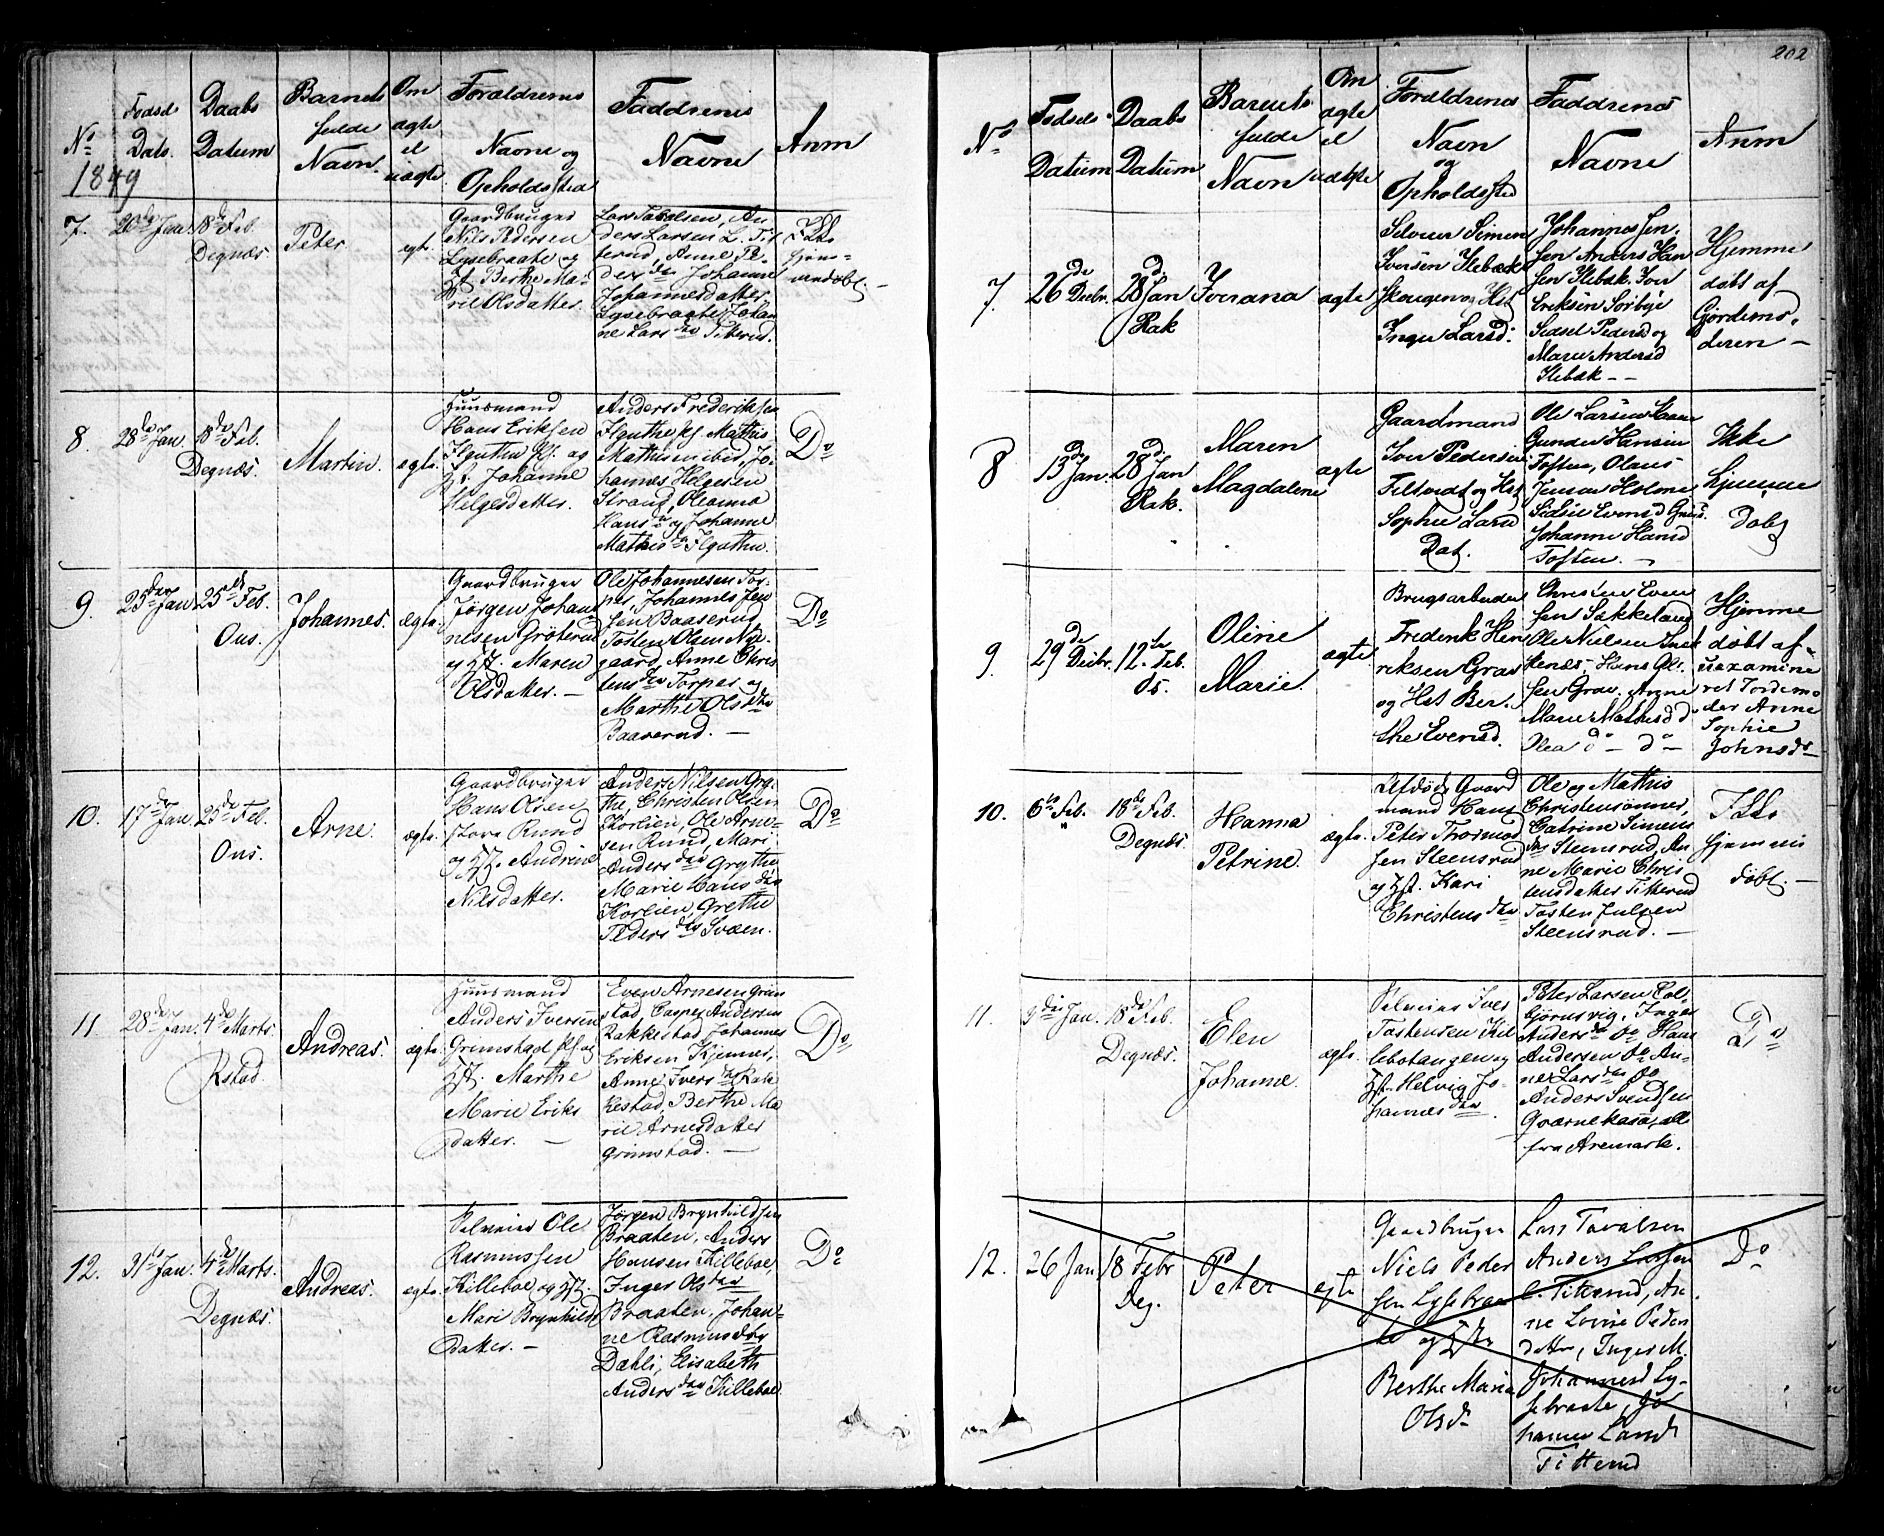 202
No
1849
Fødsel
Dato.
Daabs
Datum
Barnets
fulde
Navn.
Om
ægte
el
uægte
Forældrenes
Navne og
Opholdssted
Faddrenes
Navne
Anm
7.
26de Jan.
18de Feb.
Degnæs.
Peter
ægt.
Gaardbruger
Nils Pedersen
Lysebraate og
Hst. Berthe Ma-
rie Olsdatter.
Lars Tavelsen, An-
ders Larsen L. Tit-
terud, Anne Pe-
ders dtr Johanne
Johannesdatter
Lysebraate, Johan-
ne Lars dtr Titterud.
Ikke
hjem-
medøbt. -
8.
28de Jan.
18de Feb.
Degnæs.
Martin.
ægte.
Huusmand
Hans Eriksen
og
Hst. Johanne
Helgesdatter.
Anders Frederiksen
Mathis
Mathisen ibid, Jo-
hannes Helgesen
Strand, Oleanna
Hans dr og Johanne
Mathis da
Do
9.
25de Jan
25de Feb.
Ous.
Johannes.
ægte.
Gaardbruger
Jørgen Johan-
nesen Grøterud
og Hst. Maren
Olsdatter. -
Ole Johannesen Tor-
per, Johannes Jen-
sen Baaserud
Tosten Olsen Ny-
gaard, Anne Chris-
tens dtr Torper og
Marthe Ols dtr
Baaserud. -
Do
10.
17de Jan
25de Feb.
Ous.
Arne.
ægte.
Gaardbruger
Hans Olsen
Store Rund
og Hst. Andrine
Nilsdatter.
Anders Nilsen Gry-
the, Christen Olsen
Korlien, Ole Arne-
sen Rund, Mari
Anders dtr Grythe
Marie Hans dtr
Korlien, Grethe
Peders dtr Svæen.
Do
11.
28de Jan.
4de Marts.
Rstad.
Andreas.
ægte.
Huusmand
Anders Iversen
Grimstad og
Hst. Marthe
Marie Eriks
datter. -
Even Arnesen Grim
stad, Casper Andersen
Rakkestad, Johannes
Eriksen Kjennes,
Anne Ivers dtr Rak-
kestad, Berthe Ma
rie Arnesdatter
Grimstad. -
Do
12.
31te Jan.
4de Marts.
Degnæs.
Andreas.
ægte.
Selveier Ole
Rasmussen
Killebae og Hst.
Mari Brynhilds
datter. -
Jørgen Brynhildsen
Braaten, Anders
Hansen Killebae,
Inger Ols dtr
Braaten, Johan-
ne Rasmus dtr
Dahli, Elisabeth
Anders dtr Killebae
Do
No
Fødsels
Datum
Daabs
Datum
Barnets
fulde
Navn
Om
ægte
el
uægte
Forældrenes
Navn
og
Opholdssted
Faddrenes
Navne
Anm
7.
26de Decbr.
28d Jan
Rak
Iverana
ægte
Selveier Simen
Iversen Ilebæk
Skougen og Hst
Inger Larsd.
Johannes Jen-
sen Anders Han
sen Ilebæk. Iver
Eriksen Sørbye
Sidsel Pedersd og
Marie Andersd
Ilebæk - -
Hjemme
døbt af
Gjordemo-
deren -
8
13de Jan.
28d Jan
Rak.
Maren
Magdalene
ægte
Gaardmand
Iver Pedersen
Filtvedt og Hst
Sophie Lars
Dat.
Ole Larsen
Gunder Hansen
Toften, Olaus
Jensen Holme
Sidsel Evensd
Johanne Hansd
Toften. -
Ikke
hjemme
Døbt
9.
29de Decbr.
12te Feb.
Os.
Oline
Marie.
ægte
Brugsarbeider
Frederik Hen
riksen Grav
og Hst Ber-
the Evensd.
Christen Even
sen Sækkelund
Ole Nielsen
Hans Ol-
sen Grav. Anne
Marie Mathisd d
Olea do - do -
Hjemme
døbt af
uexamine
ret Jordemo
der Anne
Sophie
Johnsd -
10.
6te Feb.
18de Feb.
Degnæs.
Hanna
Petrine.
ægte.
Afdøde Gaard
mand Hans
Peter Thormod
sen Steensrud
og Hst. Kari
Christens dtr
Ole og Mathis
Christensønner,
Catrine Simens
dtr Steensrud, An
ne Marie Chris
tensdatter Titterud
Tosten Julsen
Steensrud. -
Ikke
hjemme
døbt. -
11.
9de Jan.
18de Feb.
Degnæs.
Elen
Johanne.
ægte.
Selveier Iver
Tostensen Kil
lebotangen og
Hst. Helvig Jo-
hannes dtr.
Peter Larsen Col-
bjørnsvig, Inger
Anders dr do Hans
Andersen do An-
ne Lars dtr do
Anders Svendsen
Qværnekasa, alle
fra Aremark.
Do
12.
26 Jan
18 Febr
Deg.
Peter
ægte
Gaardbruger
Niels Peder
sen Lysebraa
te og Hst
Berthe Maria
Olsd.
Lars Tavelsen
Anders Larsen
L. Titterud, An-
ne Lovise Peders
datter, Inger M.
Johannesd Ly-
sebraate, Jo
hanne Larsd
Titterud
Do